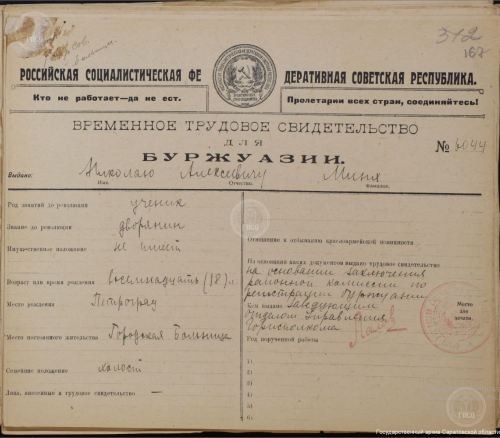 312
167
РОССИЙСКАЯ СОЦИАЛИСТИЧЕСКАЯ ФЕ ДЕРАТИВНАЯ СОВЕТСКАЯ РЕСПУБЛИКА.
Кто не работает—да не ест. Пролетарии всех стран, соединяйтесь!
ВРЕМЕННОЕ ТРУДОВОЕ СВИДЕТЕЛЬСТВО
ДЛЯ
БУРЖУАЗИИ.
№
Выдано: Николаю Алексеевичу
Имя. Отчество. Фамилия.
Род занятий до революции ученик
Звание до революции дворянин
Имущественное положение не имеет
Возраст или время рождения восемнадцать (18) л
Место рождения Петроград
Место постоянного жительства Городская Больница
Семейное положение холост
Лица, внесенные в трудовое свидетельство —
Отношение к отбыванию красноармейской повинности
На основании каких документов выдано трудовое свидетельство
на основании заключения
районной комиссии по
регистрации буржуазии
Кем выдано Заведующим
Отделом Управления
Горисполкома
Место для печати.
Род порученной работы
1)
2)
3)
4)
5)
6)
Государственный архив Саратовской области